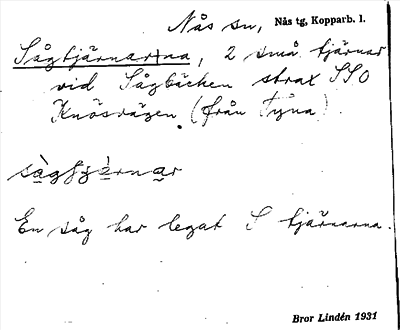 Nås sn, Nås tg, Kopparb. l.
Sågtjärnarna, 2 små tjärnar
vid Sågbäcken strax SSO
Knösvägen (från Tyna).
sàgtjàrnar
En såg har legat S tjärnarna.
Bror Lindén 1931